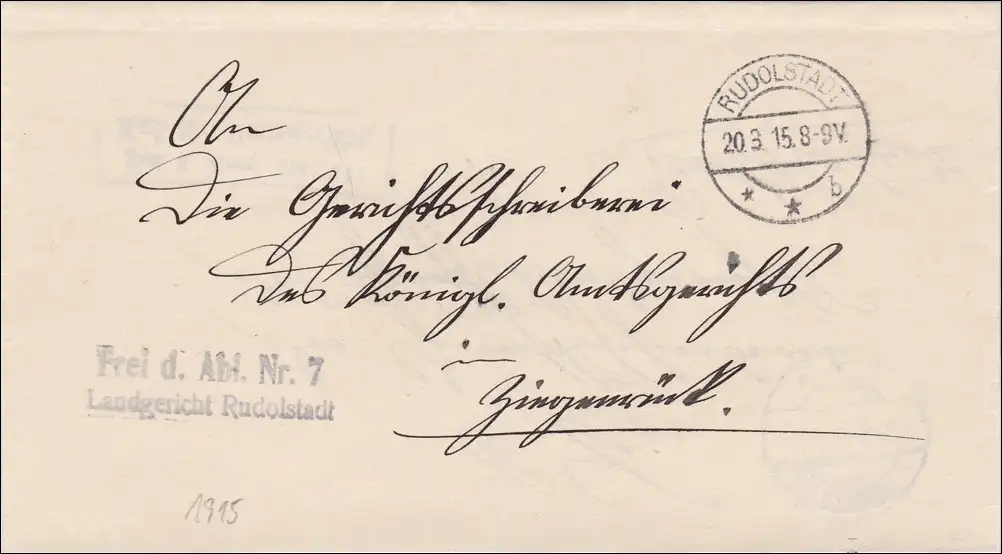 An
Die Gerichtsschreiberei
des Königl. Amtsgerichts
in
Ziegenrück.
RUDOLSTADT
20.3.15.8-9V.
* * b
Frei d. Abl. Nr. 7
Landgericht Rudolstadt
1915